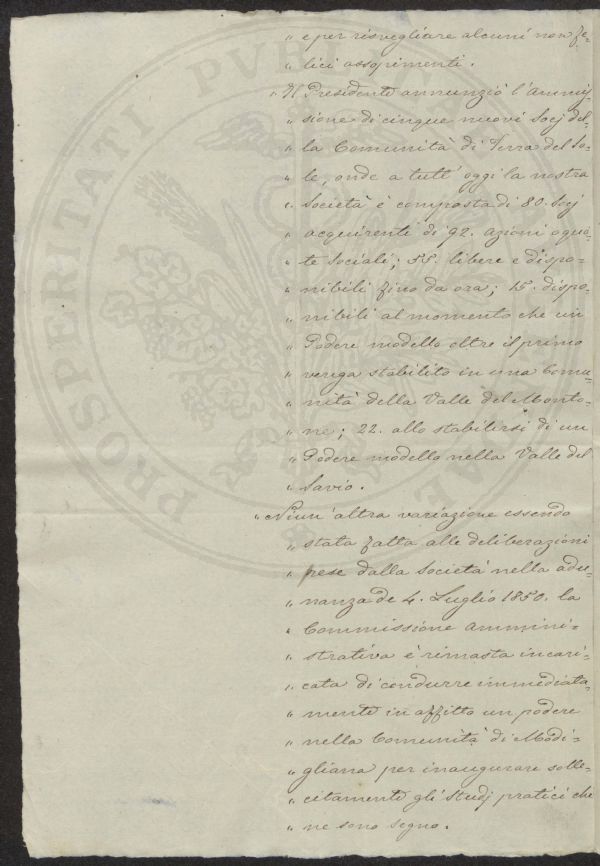 „ e per risvegliare alcuni non fe-
„ lici assopimenti.
„ Il Presidente annunziò l'ammis-
„ sione di cinque nuovi Socj del-
„ la Comunità di Terra del So-
„ le, onde a tutt'oggi la nostra
„ Società è composta di 80. Socj
„ acquirenti di 92. azioni o quo-
„ te Sociali; 55. libere e dispo-
„ nibili fino da ora; 15. dispo-
„ nibili al momento che un
„ Podere modello oltre il primo
„ venga stabilito in una Comu-
„ nità della Valle del Monto-
„ ne; 22. allo stabilirsi di un
„ Podere modello nella Valle del
„ Savio.
„ Niun'altra variazione essendo
„ stata fatta alle deliberazioni
„ prese dalla Società nella adu-
„ nanza de 4. Luglio 1850. la
„ Commissione ammini-
„ strativa è rimasta incari-
„ cata di condurre immediata-
„ mente in affitto un podere
„ nella Comunità di Modi-
„ gliana per inaugurare solle-
„ citamente gli studj pratici che
„ ne sono segno.
PROSPERITATI PVBLICAE